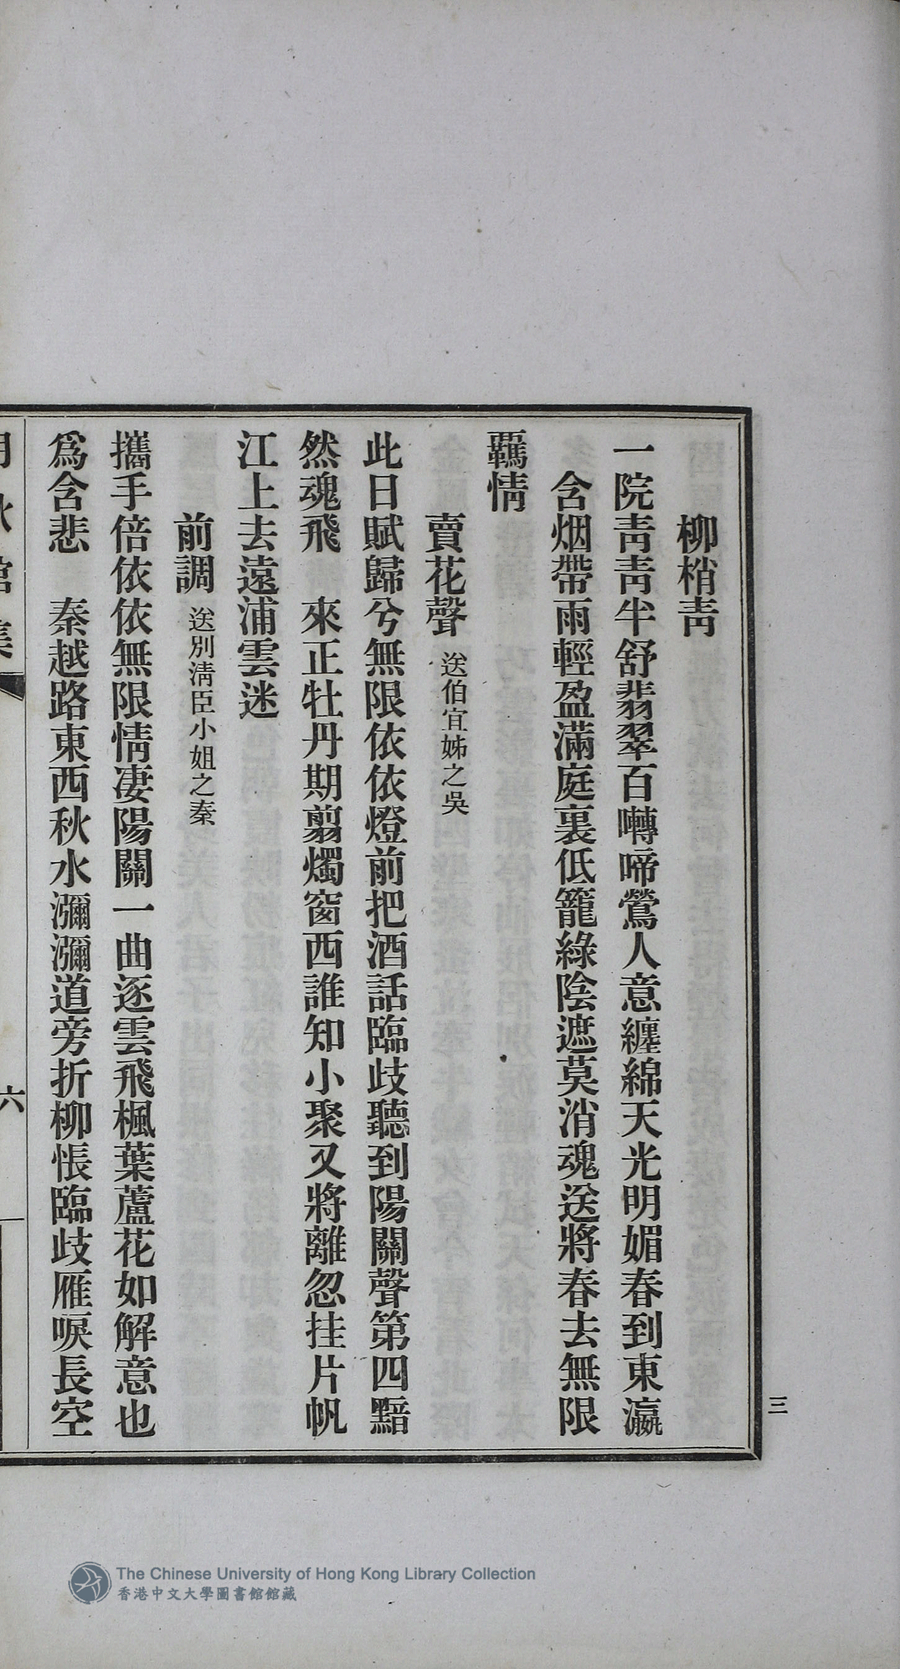 柳梢靑
一院靑靑半舒翡翠百囀啼鶯人意纏綿天光明媚春到東瀛
含烟帶雨輕盈滿庭裏低籠綠陰遮莫消魂送將春去無限
羈情
賣花聲 送伯宜姊之吳
此日賦歸兮無限依依燈前把酒話臨歧聽到陽關聲第四黯
然魂飛 來正牡丹期剪燭窗西誰知小聚又將離忽挂片帆
江上去遠浦雲迷
前調 送別淸臣小姐之秦
攜手倍依依無限情凄陽關一曲逐雲飛楓葉蘆花如解意也
爲含悲 秦越路東西秋水瀰瀰道旁折柳悵臨歧雁唳長空
六
三
The Chinese University of Hong Kong Library Collection
香港中文大學圖書館館藏